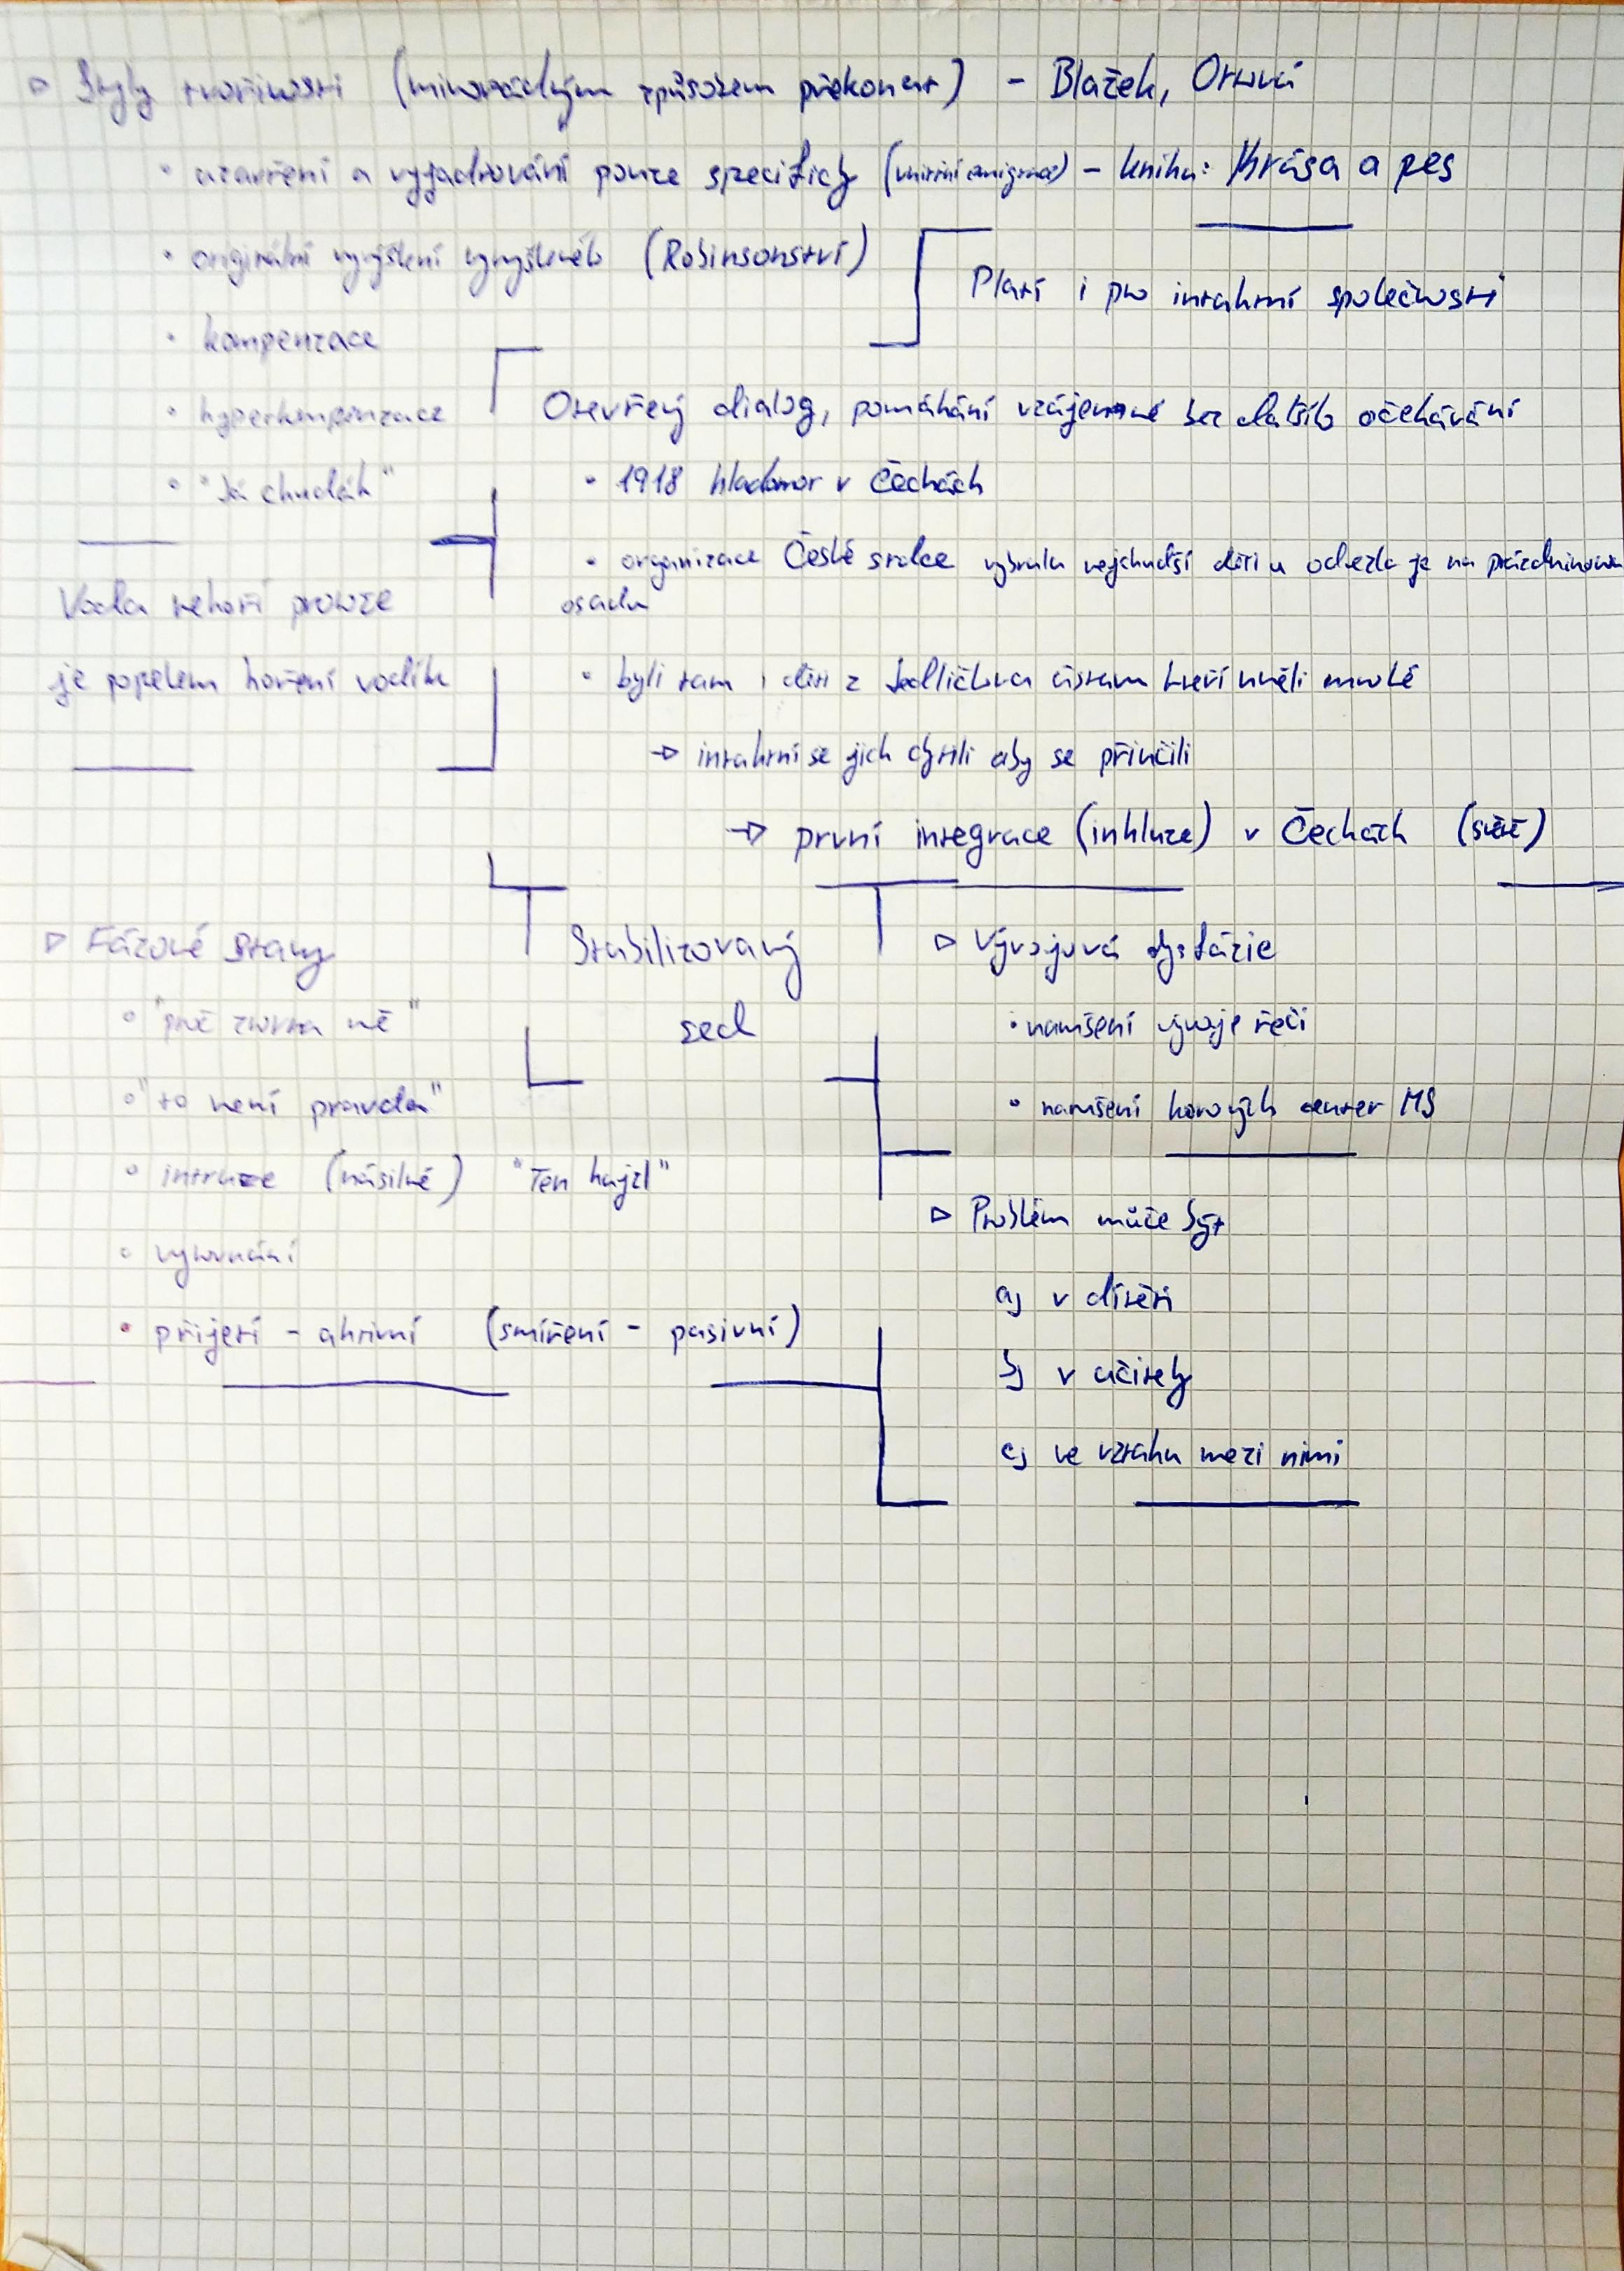 ▷ Styly tvořivosti (mimořádným způsobem překonat) - Blažek, Olmrová
• uzavření a vyjadřování pouze specificky (vnitřní emigrace) - kniha: Krása a pes
• originální vyvýšení (Robinsonství)
Platí i pro intaktní společnosti
• kompenzace
• hyperkompenzace
Otevřený dialog, pomáhání vzájemné bez dalšího očekávání
• "Já chudák"
• 1918 hladomor v Čechách
• organizace České srdce vybrala nejchudší děti a odvezla je na prázdninovou
osadu
Voda nehoří protože
je popelem hoření vodíku
• byli tam i děti z Jedličkova ústavu kteří uměli mnohé
→ intaktní se jich chytili aby se přiučili
→ první integrace (inkluze) v Čechách (světě)
▷ Fázové stavy
• "proč zrovna mě"
• "to není pravda"
• intruze (násilné) "Ten hajzl"
• vyrovnání
• přijetí - aktivní (smíření - pasivní)
Stabilizovaný
sed
▷ Vývojová dysfázie
• narušení vývoje řeči
• narušení korových center MS
▷ Problém může být
a) v dítěti
b) v učitely
c) ve vztahu mezi nimi